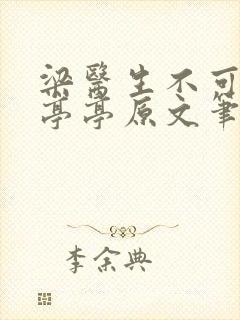 梁醫生不可
亭亭原文筆
李余典